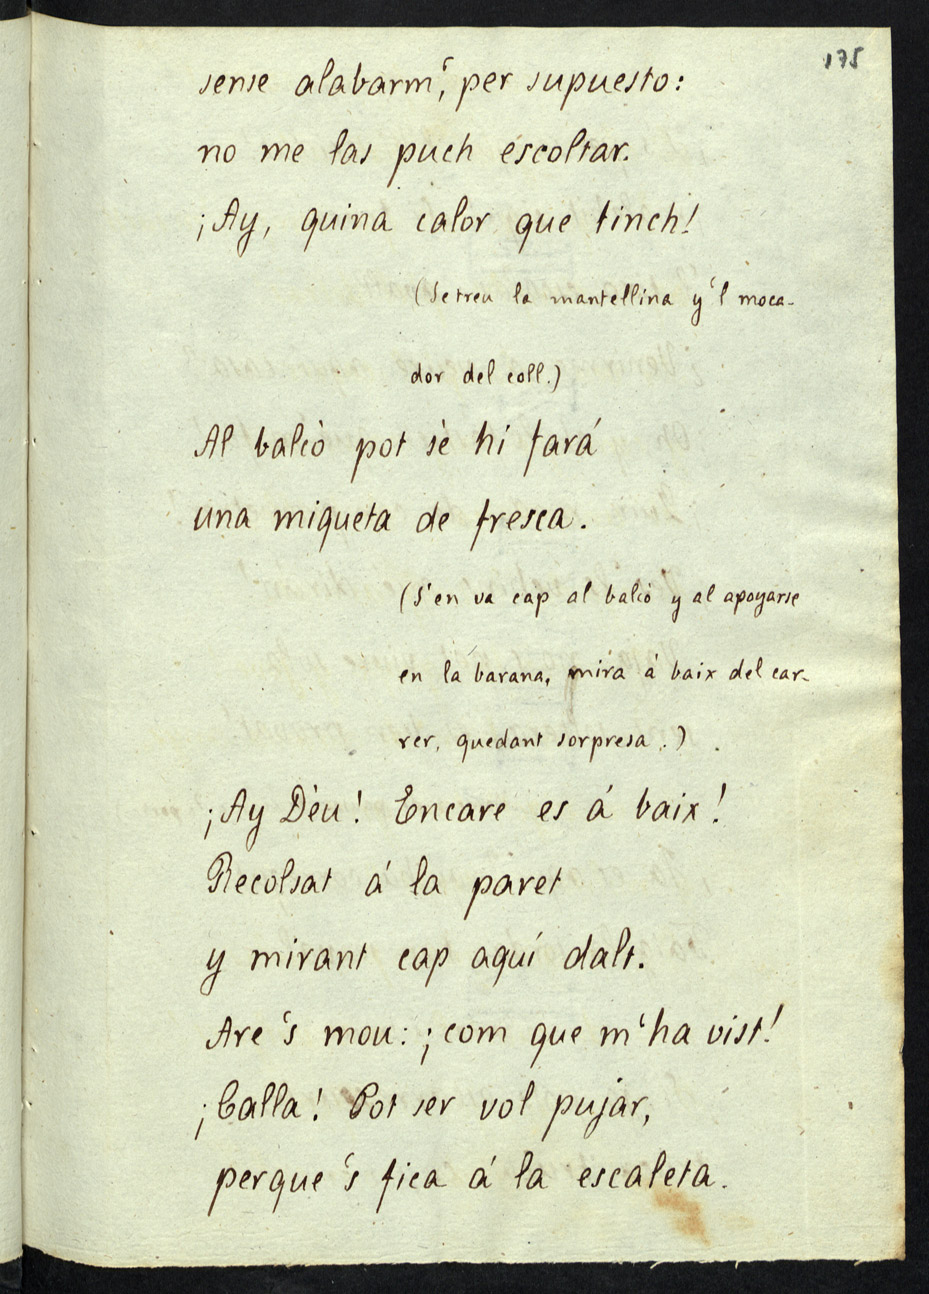 175
sense alabarm', per supuesto:
no me las puch escoltar.
¡Ay, quina calor que tinch!
(Se treu la mantellina y 'l moca-
dor del coll.)
Al balcò pot sè hi fará
una miqueta de fresca.
(S'en va cap al balcò y al apoyarse
en la barana, mira á baix del car-
rer, quedant sorpresa.)
¡Ay Dèu! Encare es á baix!
Recolsat á la paret
y mirant cap aquí dalt.
Are 's mou: ¡com que m'ha vist!
¡Calla! Pot ser vol pujar,
perque 's fica á la escaleta.